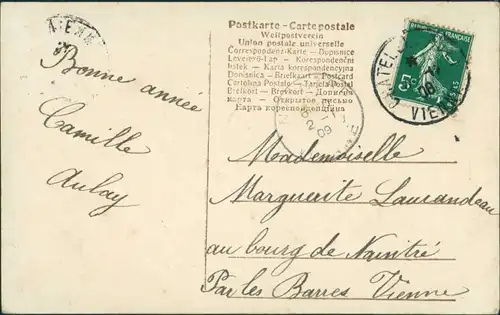 Postkarte - Cartepostale
Weltpostverein
Union postale universelle
Correspondenz-Karte - Dopisnice
Levelező-Lap - Korespondenční
lístek - Karta korespondencyjna
Dopisnica - Briefkaart - Postcard
Cartolina Postale - Tarjeta Postal
Brefkort - Brevkort - Дописна
карта - Открытое письмо
Карта кореспонденциіна
Bonne année
Camille
Aulay
Mademoiselle
Marguerite Laurandeau
au bourg de Naintré
Par les Barres Vienne
5c
VIENNE
09